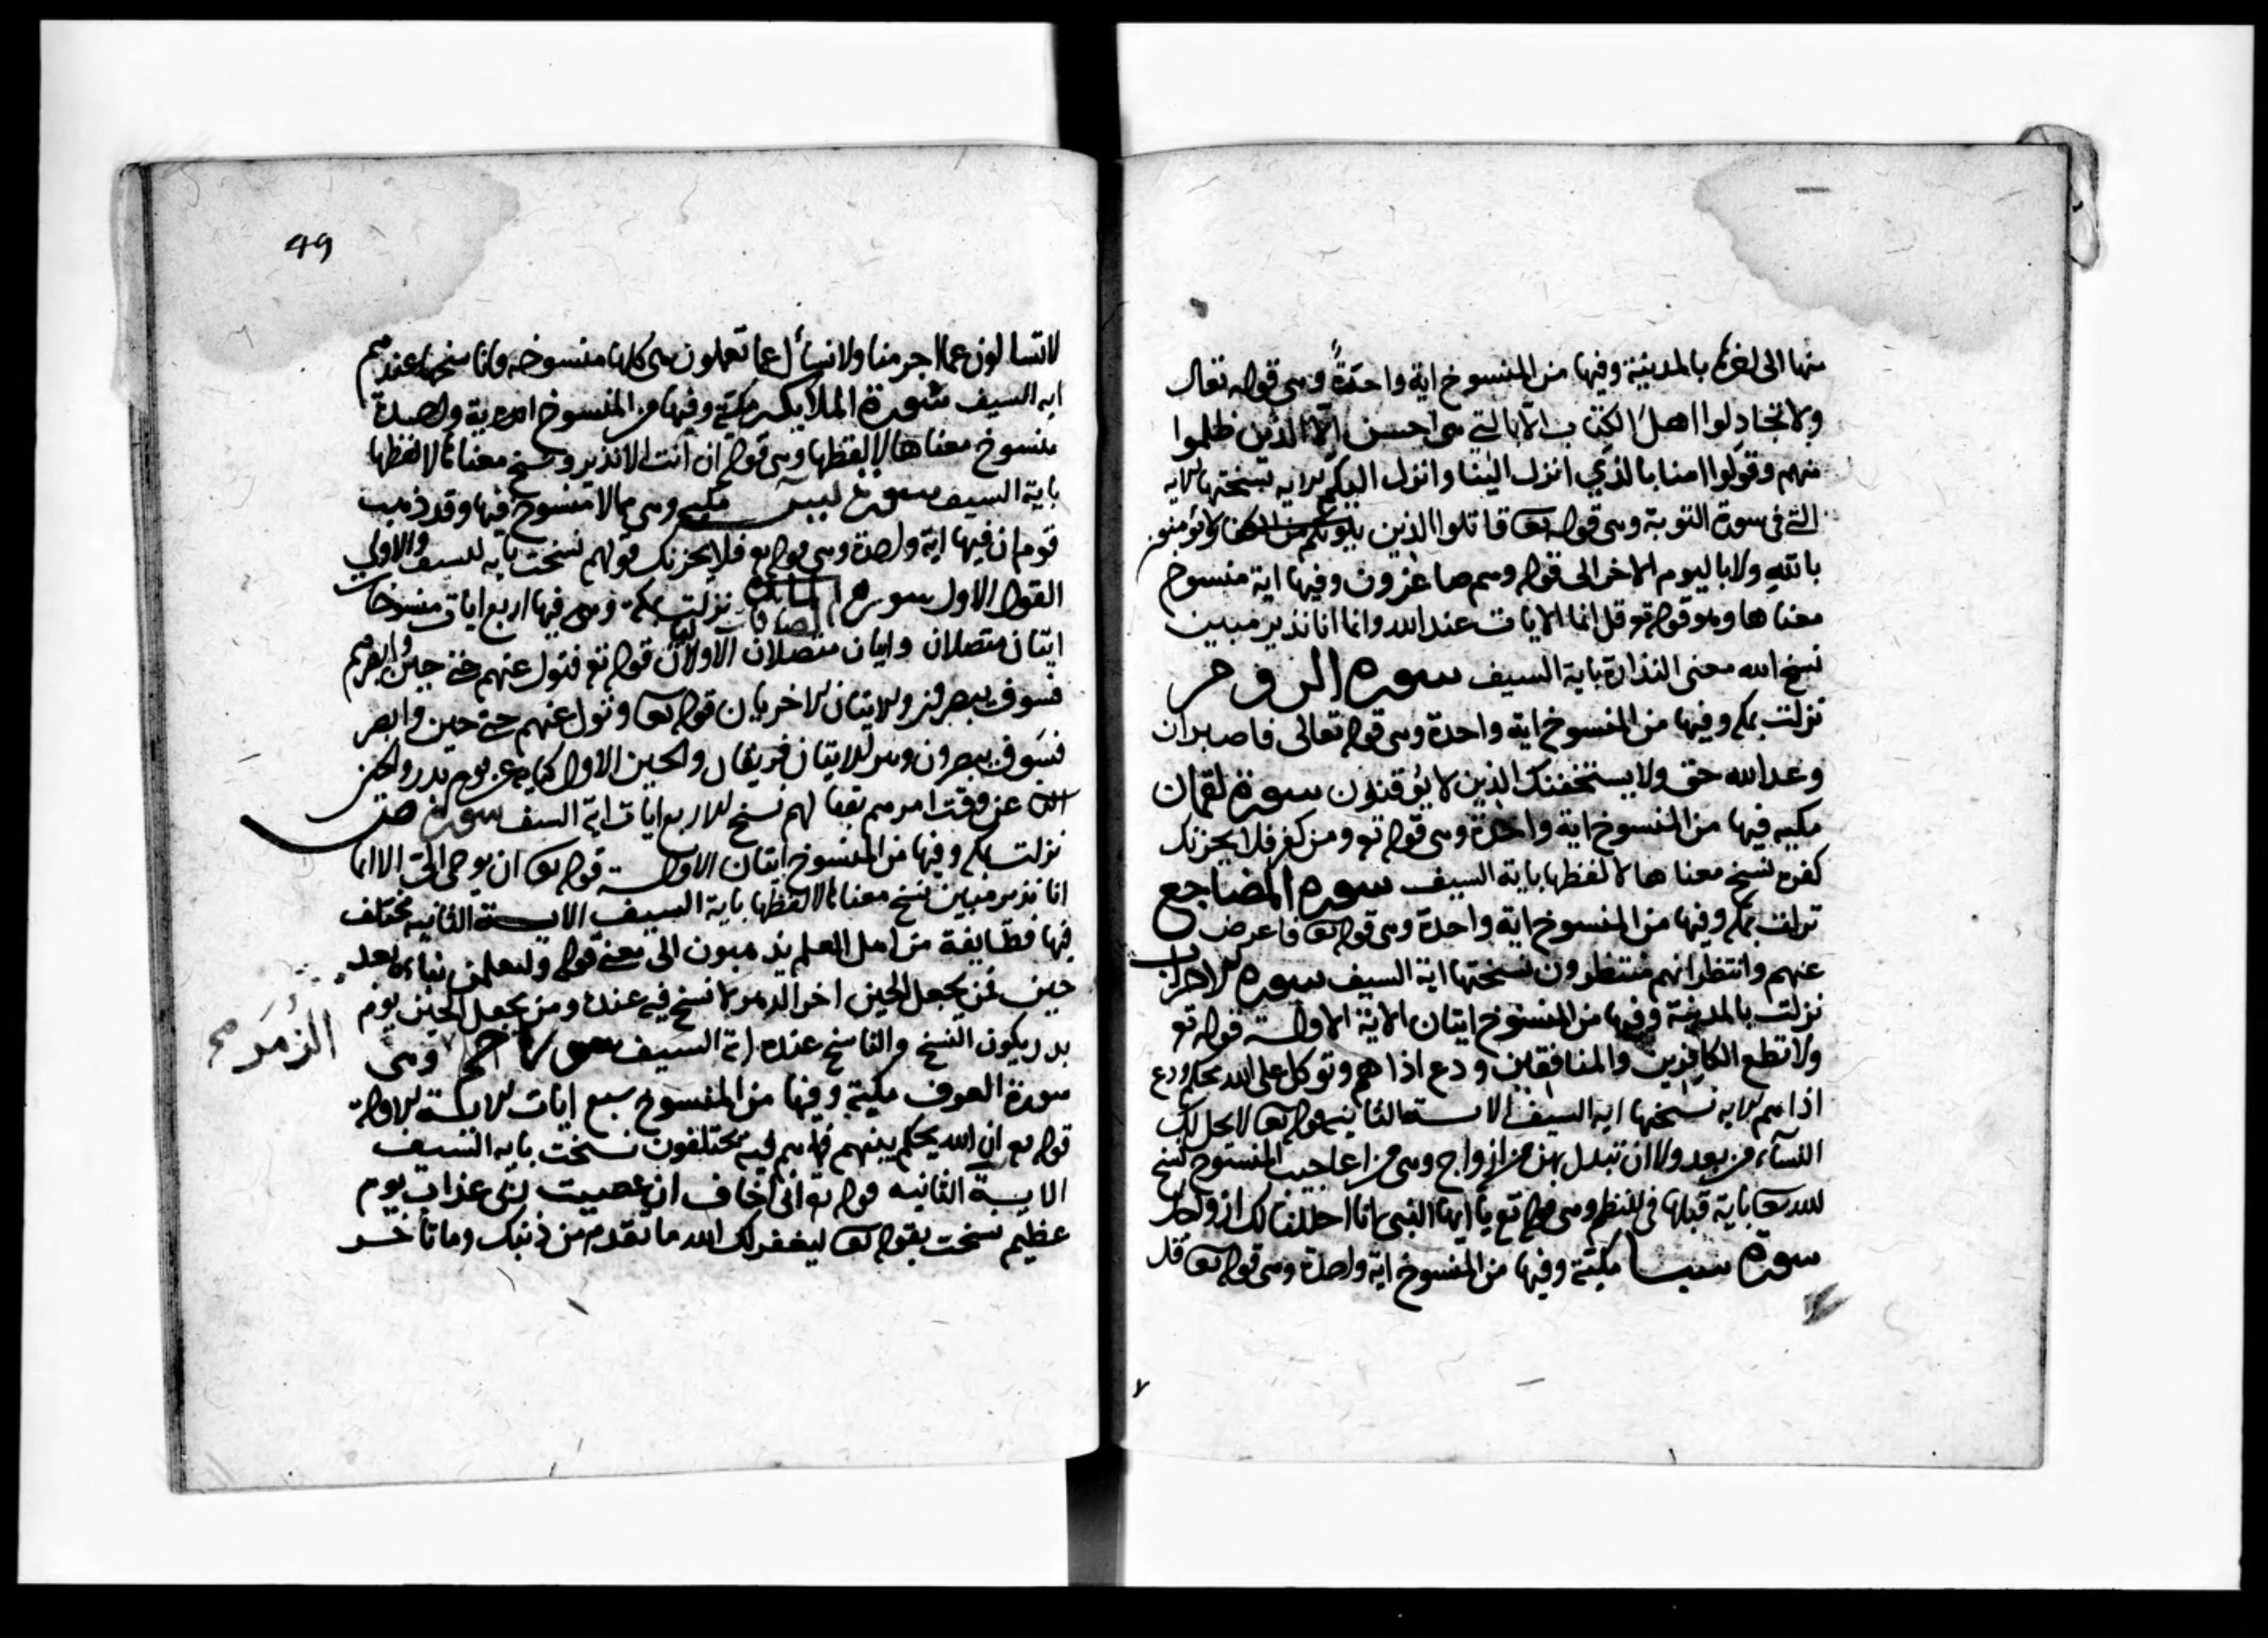 منها الى اخرها بالمدينة وفيها من المنسوخ اية واحدة وهى قوله تعالى
ولا تجادلوا اهل الكتاب الا بالتي هى احسن الا الذين ظلموا
منهم وقولوا امنا بالذي انزل الينا وانزل اليكم الاية نسختها الاية
التى فى سورة التوبة وهى قوله تع قاتلوا الذين يلونكم من الكفا لا يؤمنون
بالله ولا باليوم الاخر الى قوله وهم صاغرون وفيها اية منسوخ
معناها وهو قوله تع قل انما الايات عند الله وانما انا نذير مبين
نسخ الله معنى النذارة باية السيف سورة الروم
نزلت بمكه وفيها من المنسوخ اية واحدة وهى قوله تعالى فاصبر ان
وعد الله حق ولا يستخفنك الذين لا يوقنون سورة لقمان
مكيه فيها من المنسوخ اية واحدة وهى قوله تع ومن كفر فلا يحزنك
كفره نسخ معناها لا لفظها باية السيف سورة المضاجع
نزلت بمكه وفيها من المنسوخ اية واحدة وهى قوله تع فاعرض
عنهم وانتظر انهم منتظرون نسختها اية السيف سورة الاحزاب
نزلت بالمدينة وفيها من المنسوخ ايتان الاية الاولى قوله تع
ولا تطع الكافرين والمنافقين ودع اذاهم وتوكل على الله ودع
اذاهم الاية نسختها اية السيف الاية الثانية قوله تع لا يحل لك
النسآء من بعد ولا ان تبدل بهن من ازواج وهى من اعاجيب المنسوخ نسخ
الله تع باية قبلها فى النظم وهى قوله تع يا ايها النبى انا احللنا لك ازواجك
سورة سبا مكية وفيها من المنسوخ اية واحدة وهى قوله تع قل
49
لا تسالون عما اجرمنا ولا نسأل عما تعملون هى كلها منسوخه وناسخها عندهم
اية السيف سورة الملايكه مكية وفيها من المنسوخ اية واحدة
منسوخ معناها لا لفظها وهى قوله ان انت الا نذير ونسخ معناها لا لفظها
باية السيف سورة يس مكيه وهى مما لا منسوخ فيها وقد ذهب
قوم ان فيها اية واحدة وهى قوله تع فلا يحزنك قولهم نسخت باية السيف والاولى
القول الاول سورة الصافات نزلت بمكة وهى فيها اربع ايات منسوخات
ايتان متصلان وايتان متصلان الاولتان قوله تع فتول عنهم حتى حين وابصرهم
فسوف يبصرون والايتان الاخريان قوله تع وتول عنهم حتى حين وابصر
فسوف يبصرون والحين الاول كناية عن يوم بدر والحين
عن وقت امرهم نسخ الاربع ايات اية السيف سورة ص
نزلت بمكه وفيها من المنسوخ ايتان الاولى قوله تع ان يوحى الي الا انما
انا نذير مبين نسخ معناها لا لفظها باية السيف الاية الثانيه مختلف
فيها فطايفة من اهل العلم يذهبون الى معنى قوله ولتعلمن نباه بعد
حين فمن يجعل الحين اخر الدهر لا نسخ فيه عنده ومن يجعل الحين يوم
بدر يكون النسخ والناسخ عنده اية السيف سورة وهى
الزمر
سورة الغرف مكية وفيها من المنسوخ سبع ايات الاية الاولة
قوله تع ان الله يحكم بينهم فيما هم فيه مختلفون نسخت باية السيف
الاية الثانيه قوله تع انى اخاف ان عصيت ربى عذاب يوم
عظيم نسخت بقوله تع ليغفر لك الله ما تقدم من ذنبك وما تاخر